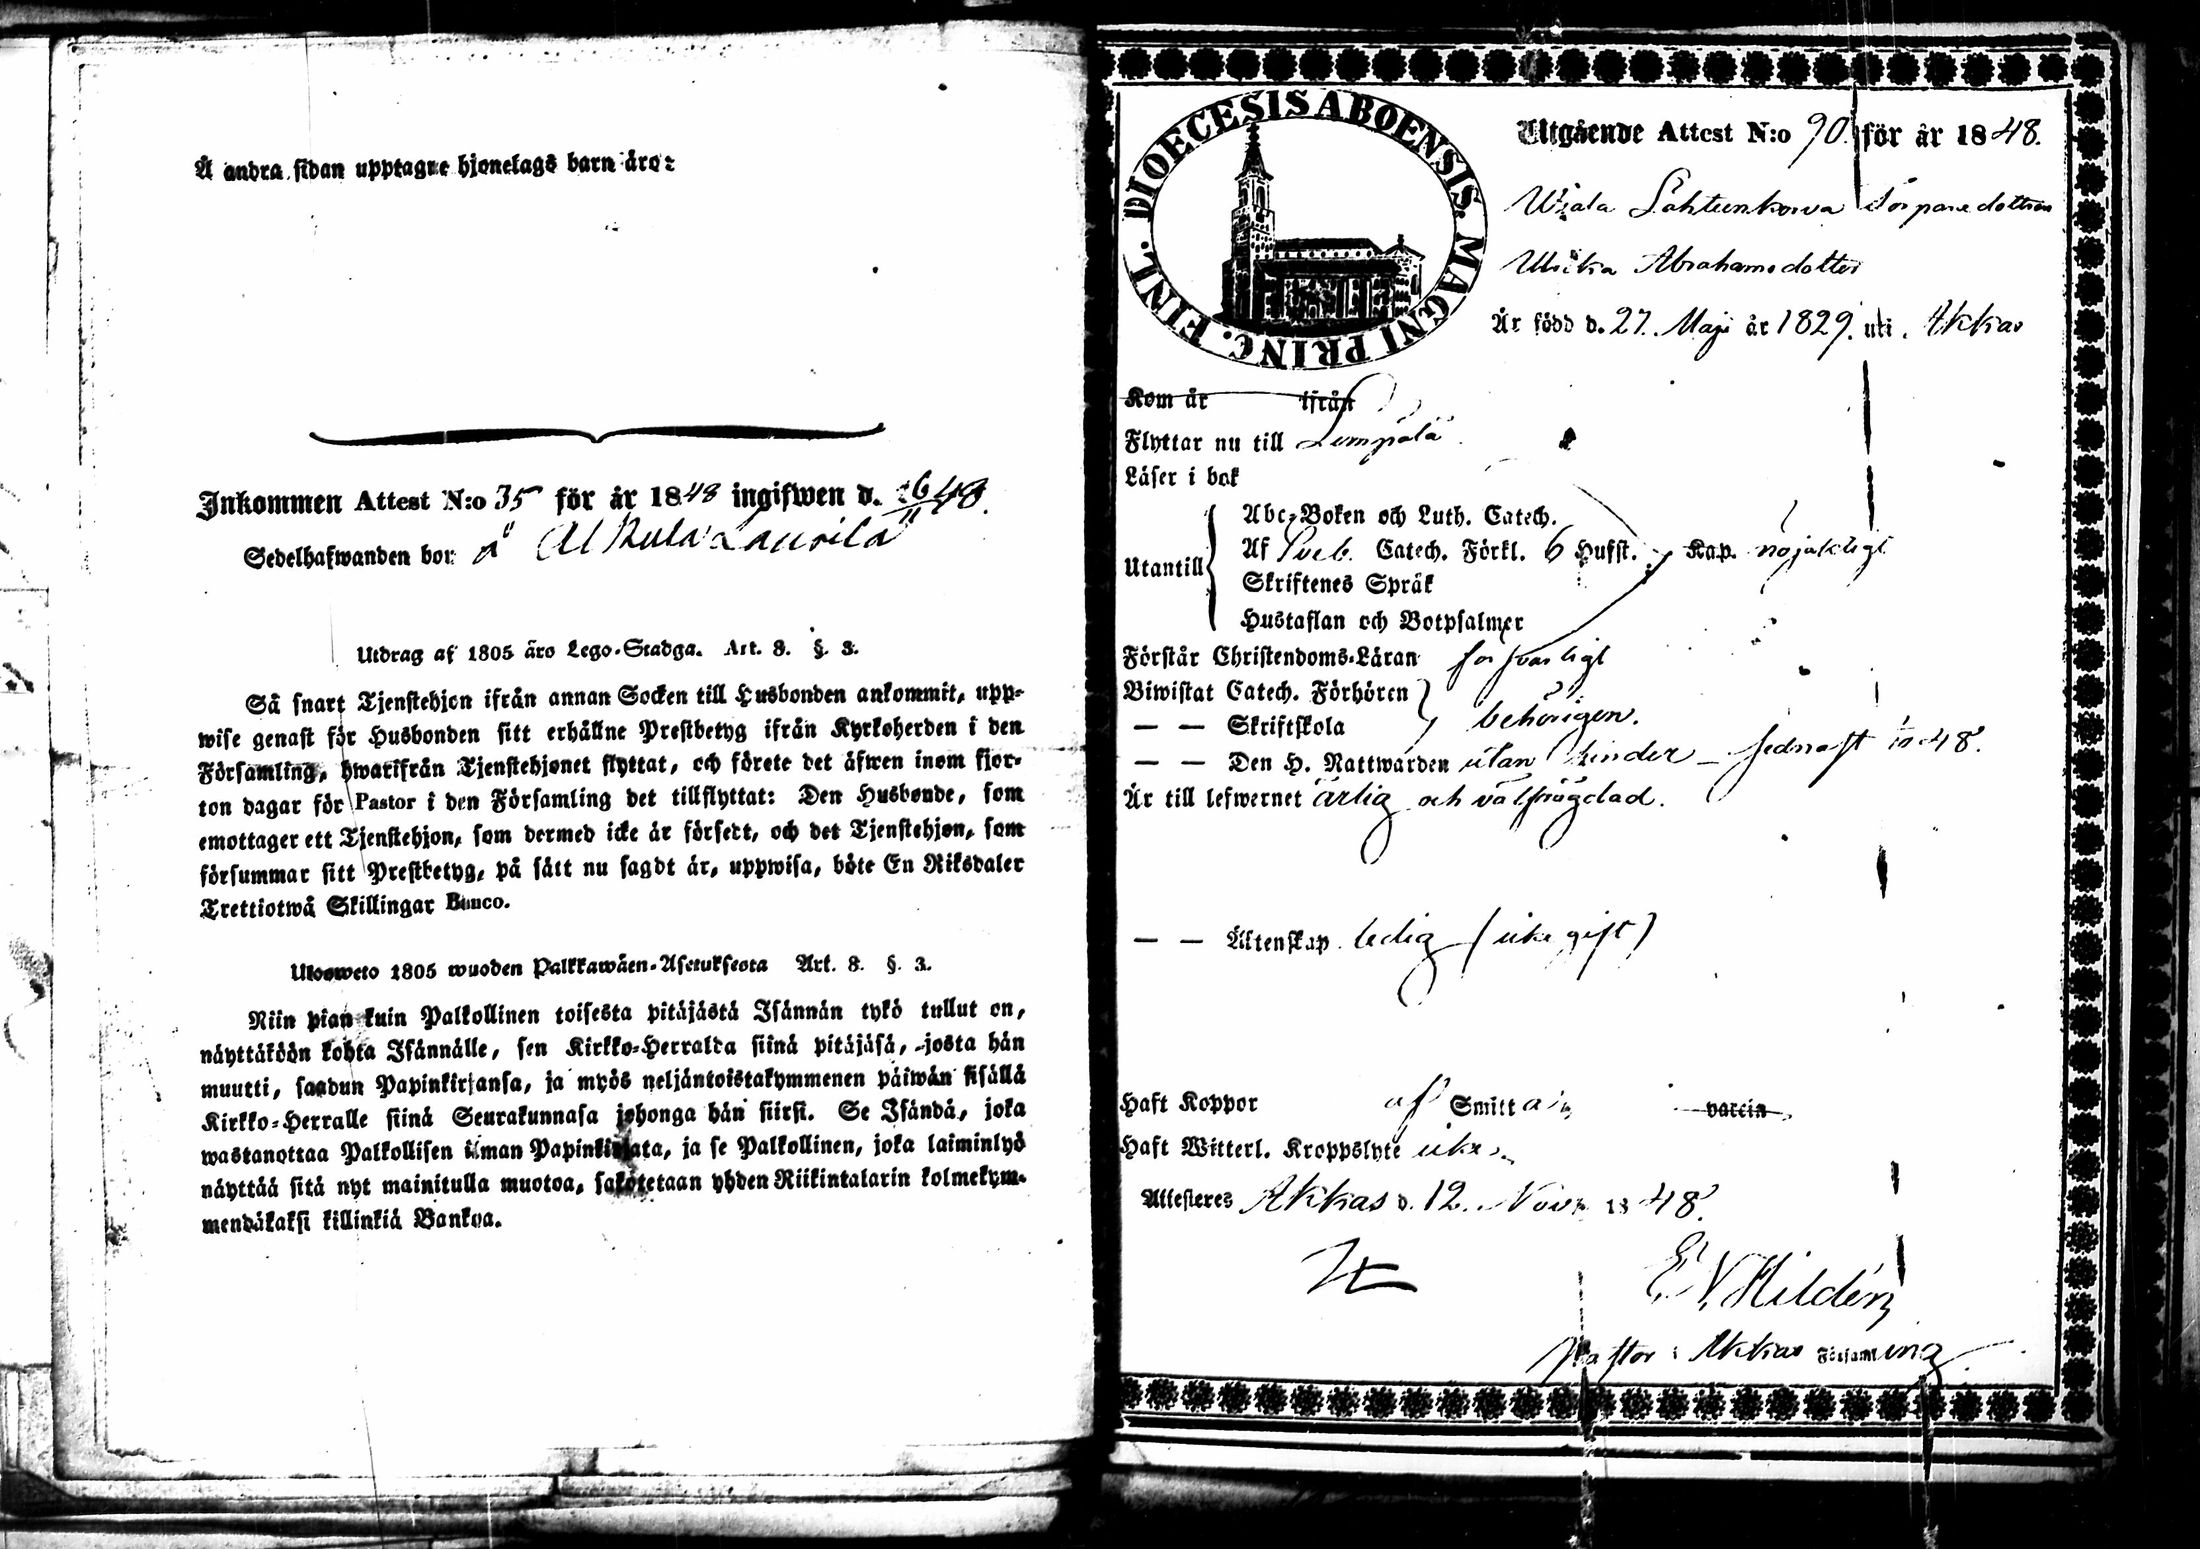 Å andra sidan upptagne hjonelags barn äro:
Inkommen Attest N:o 35 för år 1848 ingifwen d. 26/11 48.
Sedelhafwanden bor å Alkula Laurila
Utdrag af 1805 års Lego-Stadga. Art. 8. §. 3.
Så snart Tjenstehjon ifrån annan Socken till Husbonden ankommit, upp-
wise genast för Husbonden sitt erhållne Prestbetyg ifrån Kyrkoherden i den
Församling, hwarifrån Tjenstehjonet flyttat, och förete det äfwen inom fjor-
ton dagar för Pastor i den Församling det tillflyttat: Den Husbonde, som
emottager ett Tjenstehjon, som dermed icke är försedt, och det Tjenstehjon, som
försummar sitt Prestbetyg, på sätt nu sagdt är, uppwisa, böte En Riksdaler
Trettiotwå Skillingar Banco.
Ulosweto 1805 wuoden Palkkawäen-Asetuksesta Art. 8. §. 3.
Niin pian kuin Palkollinen toisesta pitäjästä Isännän tykö tullut on,
näyttäköön kohta Isännälle, sen Kirkko-Herralda siinä pitäjäsä, josta hän
muutti, saadun Papinkirjansa, ja myös neljäntoistakymmenen päiwän sisällä
Kirkko-Herralle siinä Seurakunnasa johonga hän siirsi. Se Isändä, joka
wastanottaa Palkollisen ilman Papinkirjata, ja se Palkollinen, joka laiminlyö
näyttää sitä nyt mainitulla muotoa, sakotetaan yhden Riikintalarin kolmekym-
mendäkaksi killinkiä Bankoa.
DIOECESIS ABOENSIS. MAGNI PRINC. FINL.
Utgående Attest N:o 90. för år 1848.
Wiala Lahteenkorva Torparedottren
Ulrika Abrahamsdotter
Är född d. 27. Maji år 1829. uti Akkas
Kom år ifrån
Flyttar nu till Lempälä
Läser i bok
Utantill
Abc-Boken och Luth. Catech.
Af Sveb. Catech. Förkl. 6 Hufst. Kap. nöjaktigt
Skriftenes Språk
Hustaflan och Botpsalmer
Förstår Christendoms-Läran försvarligt
Biwistat Catech. Förhören
— — Skriftskola behörigen.
— — Den H. Nattwarden utan hinder – sednast 48.
Är till lefwernet ärlig och välfrägdad.
— — Äktenskap ledig (icke gift)
Haft Koppor af Smitta vaccin
Haft Witterl. Kroppslyte icke
Attesteres Akkas d. 12. Nov. 1848.
E. V. Hildén
Pastor i Akkas Församling